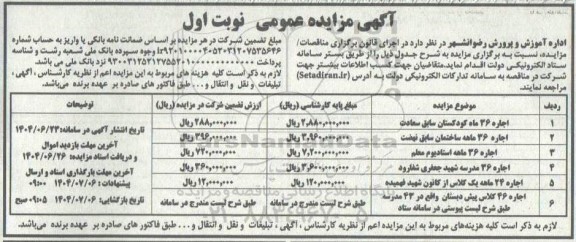 آگهی مزایده عمومی نوبت اول
اداره آموزش و پرورش رضوانشهر در نظر دارد در اجرای قانون برگزاری مناقصات/
مزایده، نسبت به برگزاری مزایده به شرح جدول ذیل را از طریق بستر سامانه
ستاد الکترونیکی دولت اقدام نماید.متقاضیان جهت کسب اطلاعات بیشتر جهت
شرکت در مناقصه به سامانه تدارکات الکترونیکی دولت به آدرس (Setadiran.ir)
مراجعه نمایند.
مبلغ تضمین شرکت در هر مزایده بر اساس ضمانت نامه بانکی یا واریز به حساب شماره
وجوه سپرده بانک ملی شعبه رشت و شناسه
پرداخت نزد بانک ملی می باشد.
لازم به ذکر است کلیه هزینه های مربوط به این مزایده اعم از نظریه کارشناسی، آگهی،
تبلیغات و نقل و انتقال و...طبق فاکتور های صادره بر عهده برنده می باشد.
ردیف موضوع مزایده مبلغ پایه کارشناسی (ریال) ارزش تضمین شرکت در مزایده (ریال) توضیحات
۱ اجاره ۳۶ ماه کودکستان سابق سعادت ۲,۸۸۰,۰۰۰,۰۰۰ ریال ۲۸۸,۰۰۰,۰۰۰ ریال
۲ اجاره ۳۶ ماهه ساختمان سابق نهضت ۳,۹۶۰,۰۰۰,۰۰۰ ریال ۳۹۶,۰۰۰,۰۰۰ ریال
۳ اجاره ۳۶ ماهه استادیوم معلم ۷,۲۰۰,۰۰۰,۰۰۰ ریال ۷۲۰,۰۰۰,۰۰۰ ریال
۴ اجاره ۳۶ مدرسه شهید جعفری شفارود ۳,۶۰۰,۰۰۰,۰۰۰ ریال ۳۶۰,۰۰۰,۰۰۰ ریال
۵ اجاره ۲۴ ماهه یک کلاس از کانون شهید فهمیده ۱۲۰,۰۰۰,۰۰۰ ریال ۱۲,۰۰۰,۰۰۰ ریال
۶ اجاره ۴۶ کلاس پیش دبستان واقع در ۴۳ مدرسه
طبق شرح لیست پیوستی در سامانه ستاد طبق شرح لیست مندرج در سامانه طبق شرح لیست مندرج در سامانه
تاریخ انتشار آگهی در سامانه: ۱۴۰۴/۰۶/۲۳
آخرین مهلت بازدید اموال
و دریافت اسناد مزایده: ۱۴۰۴/۰۶/۲۶
آخرین مهلت بارگذاری اسناد و ارسال
پیشنهادات : ۱۴۰۴/۰۷/۰۶ ۰۹:۰۰
تاریخ بازگشایی: ۱۴۰۴/۰۷/۰۶ ۰۹:۰۵ صبح
لازم به ذکر است کلیه هزینه های مربوط به این مزایده اعم از نظریه کارشناسی، آگهی، تبلیغات و نقل و انتقال و...طبق فاکتور های صادره بر عهده برنده می باشد.